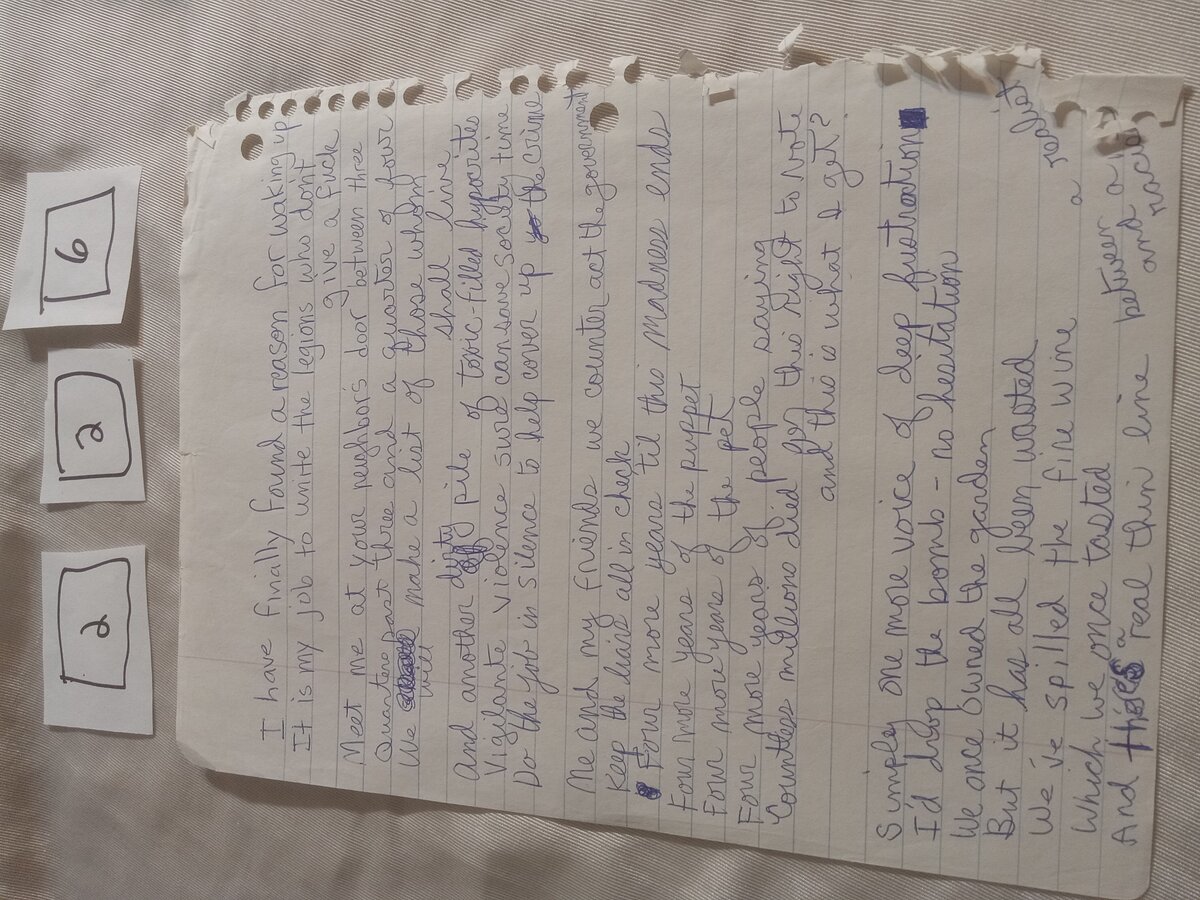 2
2
6
I have finally found a reason for waking up
It is my job to unite the legions who dont
give a fuck
Meet me at your neighbors door between three
Quarters past three and a quarter of four
We will make a list of those whom
shall live
And another dirty pile of toxic-filled hypocrites
Vigilante violence sure can save society time
Do the job in silence to help cover up the crime
Me and my friends we counter act the government
Keep the liars all in check
Four more years til this madness ends
Four more years of the puppet
Four more years of the pet
Four more years of people saying
Countless millions died for this right to vote
and this is what I get?
Simpley one more voice of deep frustration
I'd drop the bomb - no hesitation
We once owned the garden
But it has all been wasted
We've spilled the fine wine
Which we once tasted
And theres a real thin line between a
realist
and a racist